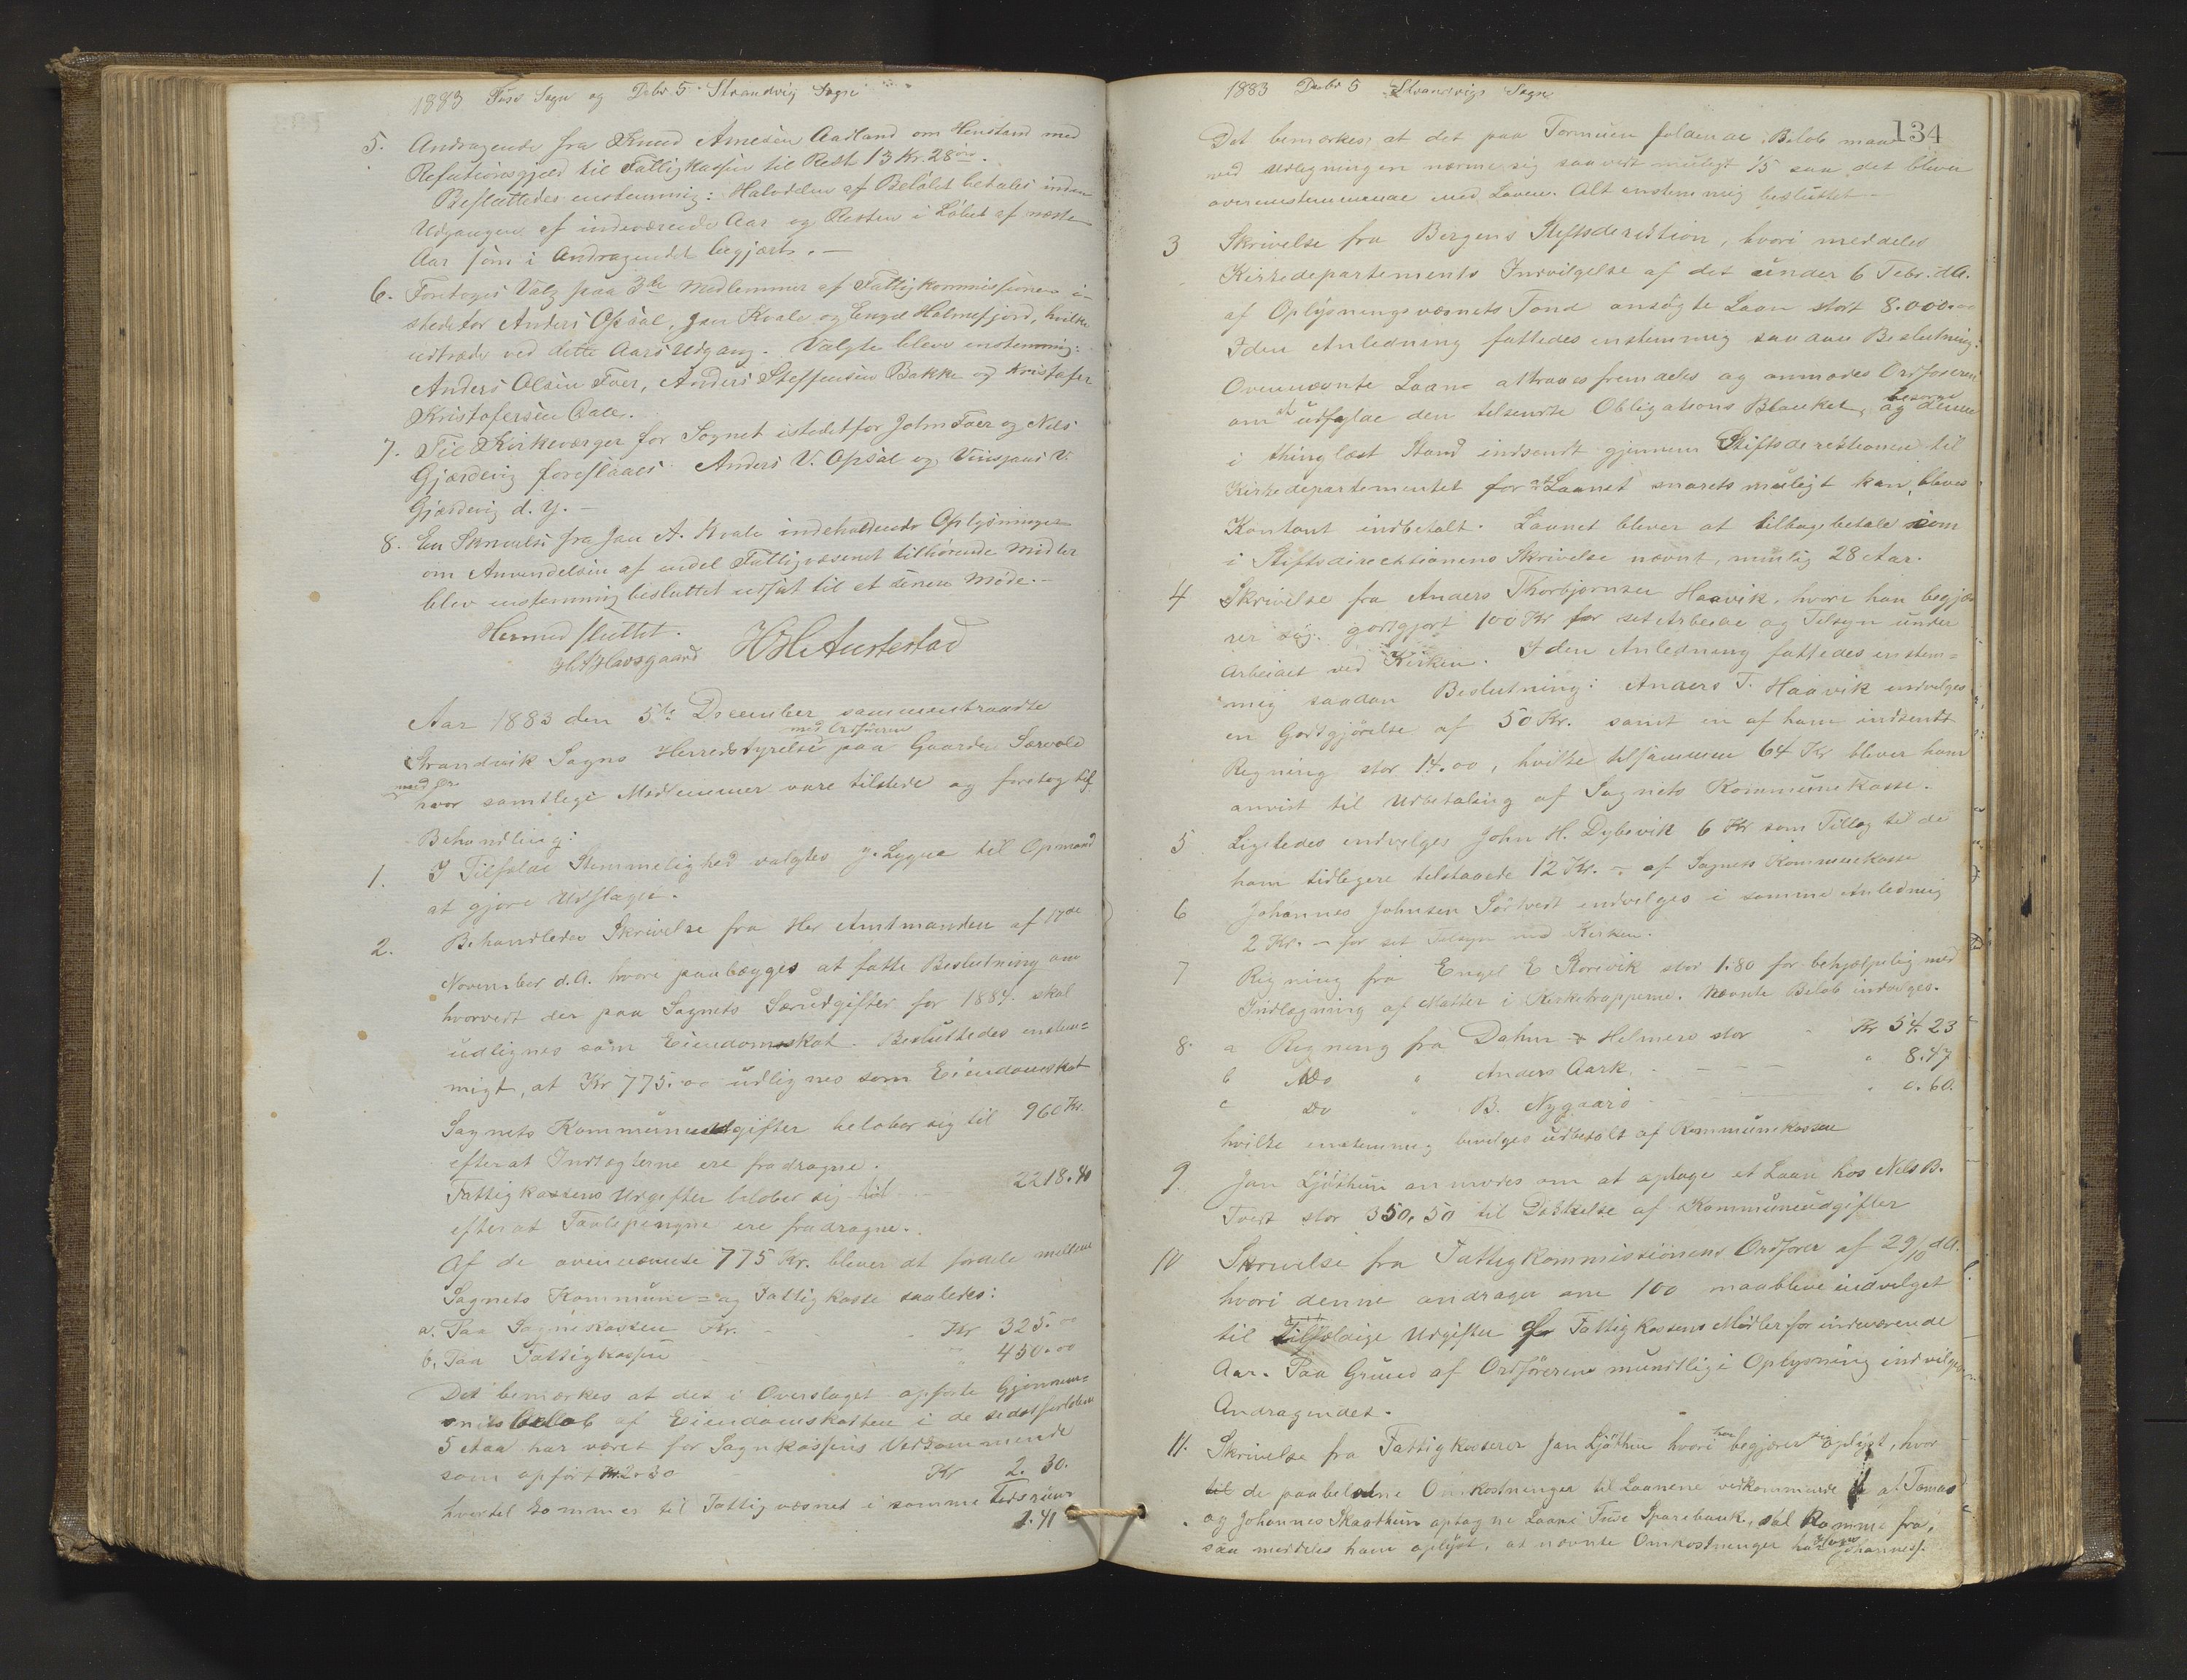 1883 Fuse Sogn og Debr. 5 Strandvig Sogn
5. Andragende fra Knud Arnesen Aadland om Henstand med
Refutionsgjæld til Fattigkassen til Rest 13 Kr. 28 øre.
Besluttedes enstemmig: Halvdelen af Beløbet betales inden
Udgangen af indeværende Aar og Resten i Løbet af næste
Aar som i Andragendet begjært. —
6. Foretoges Valg paa 3de Medlemmer af Fattigkommissionen i-
stedetfor Anders Opsal, Jan Kvale og Engel Holmefjord, hvilke
udtræde ved dette Aars Udgang. Valgte bleve enstemmig:
Anders Olsen Foer, Anders Steffensen Bakke og Kristofer
Kristofersen Aale.
7. Til Kirkeværger for Sognet istedetfor John Foer og Nils
Gjærdevig foreslaaes Anders V. Opsal og Vinsjans V.
Gjærdevig d. y. —
8. En Skrivelse fra Jan A. Kvale indeholdende Oplysninger
om Anvendelsen af endel Fattigvæsenet tilhørende Midler
blev enstemmig besluttet udsat til et senere Møde. —
Hermed sluttet.
Havsgaard H H Austestad
Aar 1883 den 5te December sammentraadte
med Ordføreren
Strandvik Sogns Herredstyrelse paa Gaarden Sævold
hvor samtlige Medlemmer vare tilstede og foretog til
Behandling:
1. I Tilfælde Stemmelighed valgtes J. Lygre til Opmand
at gjøre Udslaget.
2. Behandledes Skrivelse fra Her Amtmanden af 17de
November d.A. hvori paalægges at fatte Beslutning om
hvorvidt der paa Sognets Særudgifter for 1884 skal
udlignes som Eiendomsskat. Besluttedes enstem=
migt, at Kr 775.00 udlignes som Eiendomsskat
Sognets Kommuneudgifter beløber sig til 960 Kr.
efterat Indtægterne ere fradragne.
Fattigkassens Udgifter beløber sig til 2218.40
efterat Taalspengne ere fradragne.
Af de ovennævnte 775 Kr. bliver at fordele mellem
Sognets Kommune= og Fattigkasse saaledes:
a. Paa Sognekassen Kr. Kr 325.00
b. Paa Fattigkassen " 450.00
Det bemærkes at det i Overslaget opførte Gjennem=
snitsbeløb af Eiendomsskatten i de sidst forløbne
5 Aar har været for Sognkassens Vedkommende
som opført Kr. 2.30 Kr 2.30.
hvortil kommer til Fattigvæsnet i samme Tidsrum
1.41
1883 Decbr 5 Strandvigs Sogn
134
Det bemærkes at det paa Formuen faldende Beløb maa
ved Udlegningen nærme sig saavidt muligt 1/5 saa det bliver
overensstemmende med Loven. Alt enstemmig besluttet —
3 Skrivelse fra Bergens Stiftsdirektion, hvori meddeles
Kirkedepartements Indvilgelse af det under 6 Febr. d.A.
af Oplysningsvæsnets Fond ansøgte Laan stort 8.000.00
I den Anledning fattedes enstemmig saadan Beslutning:
Ovennævnte Laan attraaes fremdeles og anmodes Ordføreren
om at udfylde den tilsendte Obligations Blanket, og besørge denne
i thinglæst Stand indsendt gjennem Stiftsdirektionen til
Kirkedepartementet for at Laanet snarets muligt kan bleve
Kontant indbetalt. Laanet bliver at tilbagebetale som
i Stiftsdirecktionens Skrivelse nævnt, nemlig 28 Aar.
4 Skrivelse fra Anders Thorbjørnsen Haavik, hvori han begjæ
rer sig godtgjort 100 Kr for sit Arbeide og Tilsyn under
Arbeidet ved Kirken. I den Anledning fattedes enstem=
mig saadan Beslutning: Anders T. Haavik indvilges
en Godtgjørelse af 50 Kr. samt en af ham indsendt
Regning stor 14.00, hvilke tilsammen 64 Kr bliver ham
anvist til Udbetaling af Sognets Kommunekasse.
5 Ligeledes indvilges John H. Dybsvik 6 Kr som Tillæg til de
ham tidligere tilstaaede 12 Kr. — af Sognets Kommunekasse
6 Johannes Johnsen Sørtveit indvilges i samme Anledning
2 Kr. — for sit Tilsyn med Kirken.
7 Regning fra Engel E Korsvik stor 1.80 for behjælpelig med
Indlægning af Matter i Kirketrapperne. Nævnte Beløb indvilges.
8. a Regning fra Dahm & Helmers stor Kr 54.23
b Do " Anders Aark. " 8.47
c Do " B. Nygaard " 0.60.
hvilke enstemmig bevilges udbetalt af Kommunekassen
9 Jan Ljøthun anmodes om at optage et Laan hos Nels B.
Tveit stor 350,50 til Dækkelse af Kommuneudgifter
10 Skrivelse fra Fattigkommissionens Ordfører af 29/10 d.A.
hvori denne andrager om 100 maa bleve indvilget
til Tilfældige Udgifter af Fattigkassens Midler for indeværende
Aar. Paa Grund af Ordførerens mundtlige Oplysning indvilges
Andragendet.
11. Skrivelse fra Fattigkasserer Jan Ljøthun hvori han begjærer sig oplyst, hvor
til de paabeløbne Omkostninger til Laanene vedkommende af Tomas
og Johannes Skaathun optagne Laan i Fuse Sparebank, skal komme fra,
saa meddeles ham oplyst, at nævnte Omkostninger Johannes